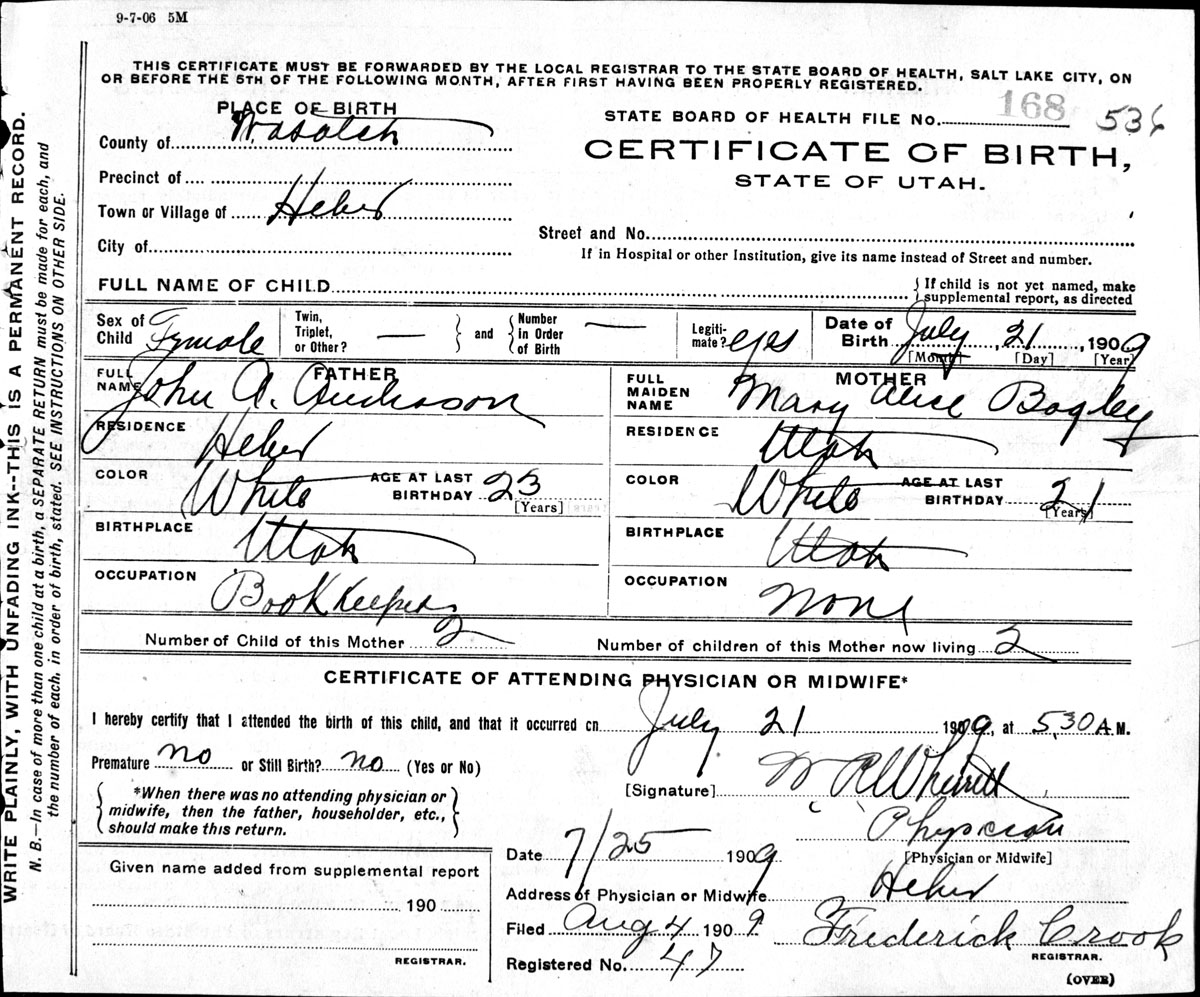 9-7-06 5M
THIS CERTIFICATE MUST BE FORWARDED BY THE LOCAL REGISTRAR TO THE STATE BOARD OF HEALTH, SALT LAKE CITY, ON
OR BEFORE THE 5TH OF THE FOLLOWING MONTH, AFTER FIRST HAVING BEEN PROPERLY REGISTERED.
PLACE OF BIRTH
County of Wasatch
Precinct of
Town or Village of Heber
City of
STATE BOARD OF HEALTH FILE No. 168 536
CERTIFICATE OF BIRTH,
STATE OF UTAH.
Street and No.
If in Hospital or other Institution, give its name instead of Street and number.
FULL NAME OF CHILD
{ If child is not yet named, make
supplemental report, as directed
Sex of Child Female
Twin, Triplet, or Other? —
and
Number in Order of Birth —
Legiti- mate? yes
Date of Birth July 21, 1909
[Month] [Day] [Year]
FATHER
FULL NAME John A. Anderson
RESIDENCE Heber
COLOR White AGE AT LAST BIRTHDAY 23
[Years]
BIRTHPLACE Utah
OCCUPATION Book Keeper
MOTHER
FULL MAIDEN NAME Mary Alice Bagley
RESIDENCE Utah
COLOR White AGE AT LAST BIRTHDAY 21
[Years]
BIRTHPLACE Utah
OCCUPATION None
Number of Child of this Mother 2
Number of children of this Mother now living 2
CERTIFICATE OF ATTENDING PHYSICIAN OR MIDWIFE*
I hereby certify that I attended the birth of this child, and that it occurred on July 21 1909, at 5 30 A.M.
Premature no or Still Birth? no (Yes or No)
*When there was no attending physician or
midwife, then the father, householder, etc.,
should make this return.
[Signature] W R Wherritt
Physician
[Physician or Midwife]
Date 7/25 1909
Address of Physician or Midwife Heber
Filed Aug 4 1909 Frederick Crook
REGISTRAR.
Registered No. 47
(OVER)
Given name added from supplemental report
190
REGISTRAR.
WRITE PLAINLY, WITH UNFADING INK--THIS IS A PERMANENT RECORD.
N. B.—In case of more than one child at a birth, a SEPARATE RETURN must be made for each, and
the number of each, in order of birth, stated. SEE INSTRUCTIONS ON OTHER SIDE.